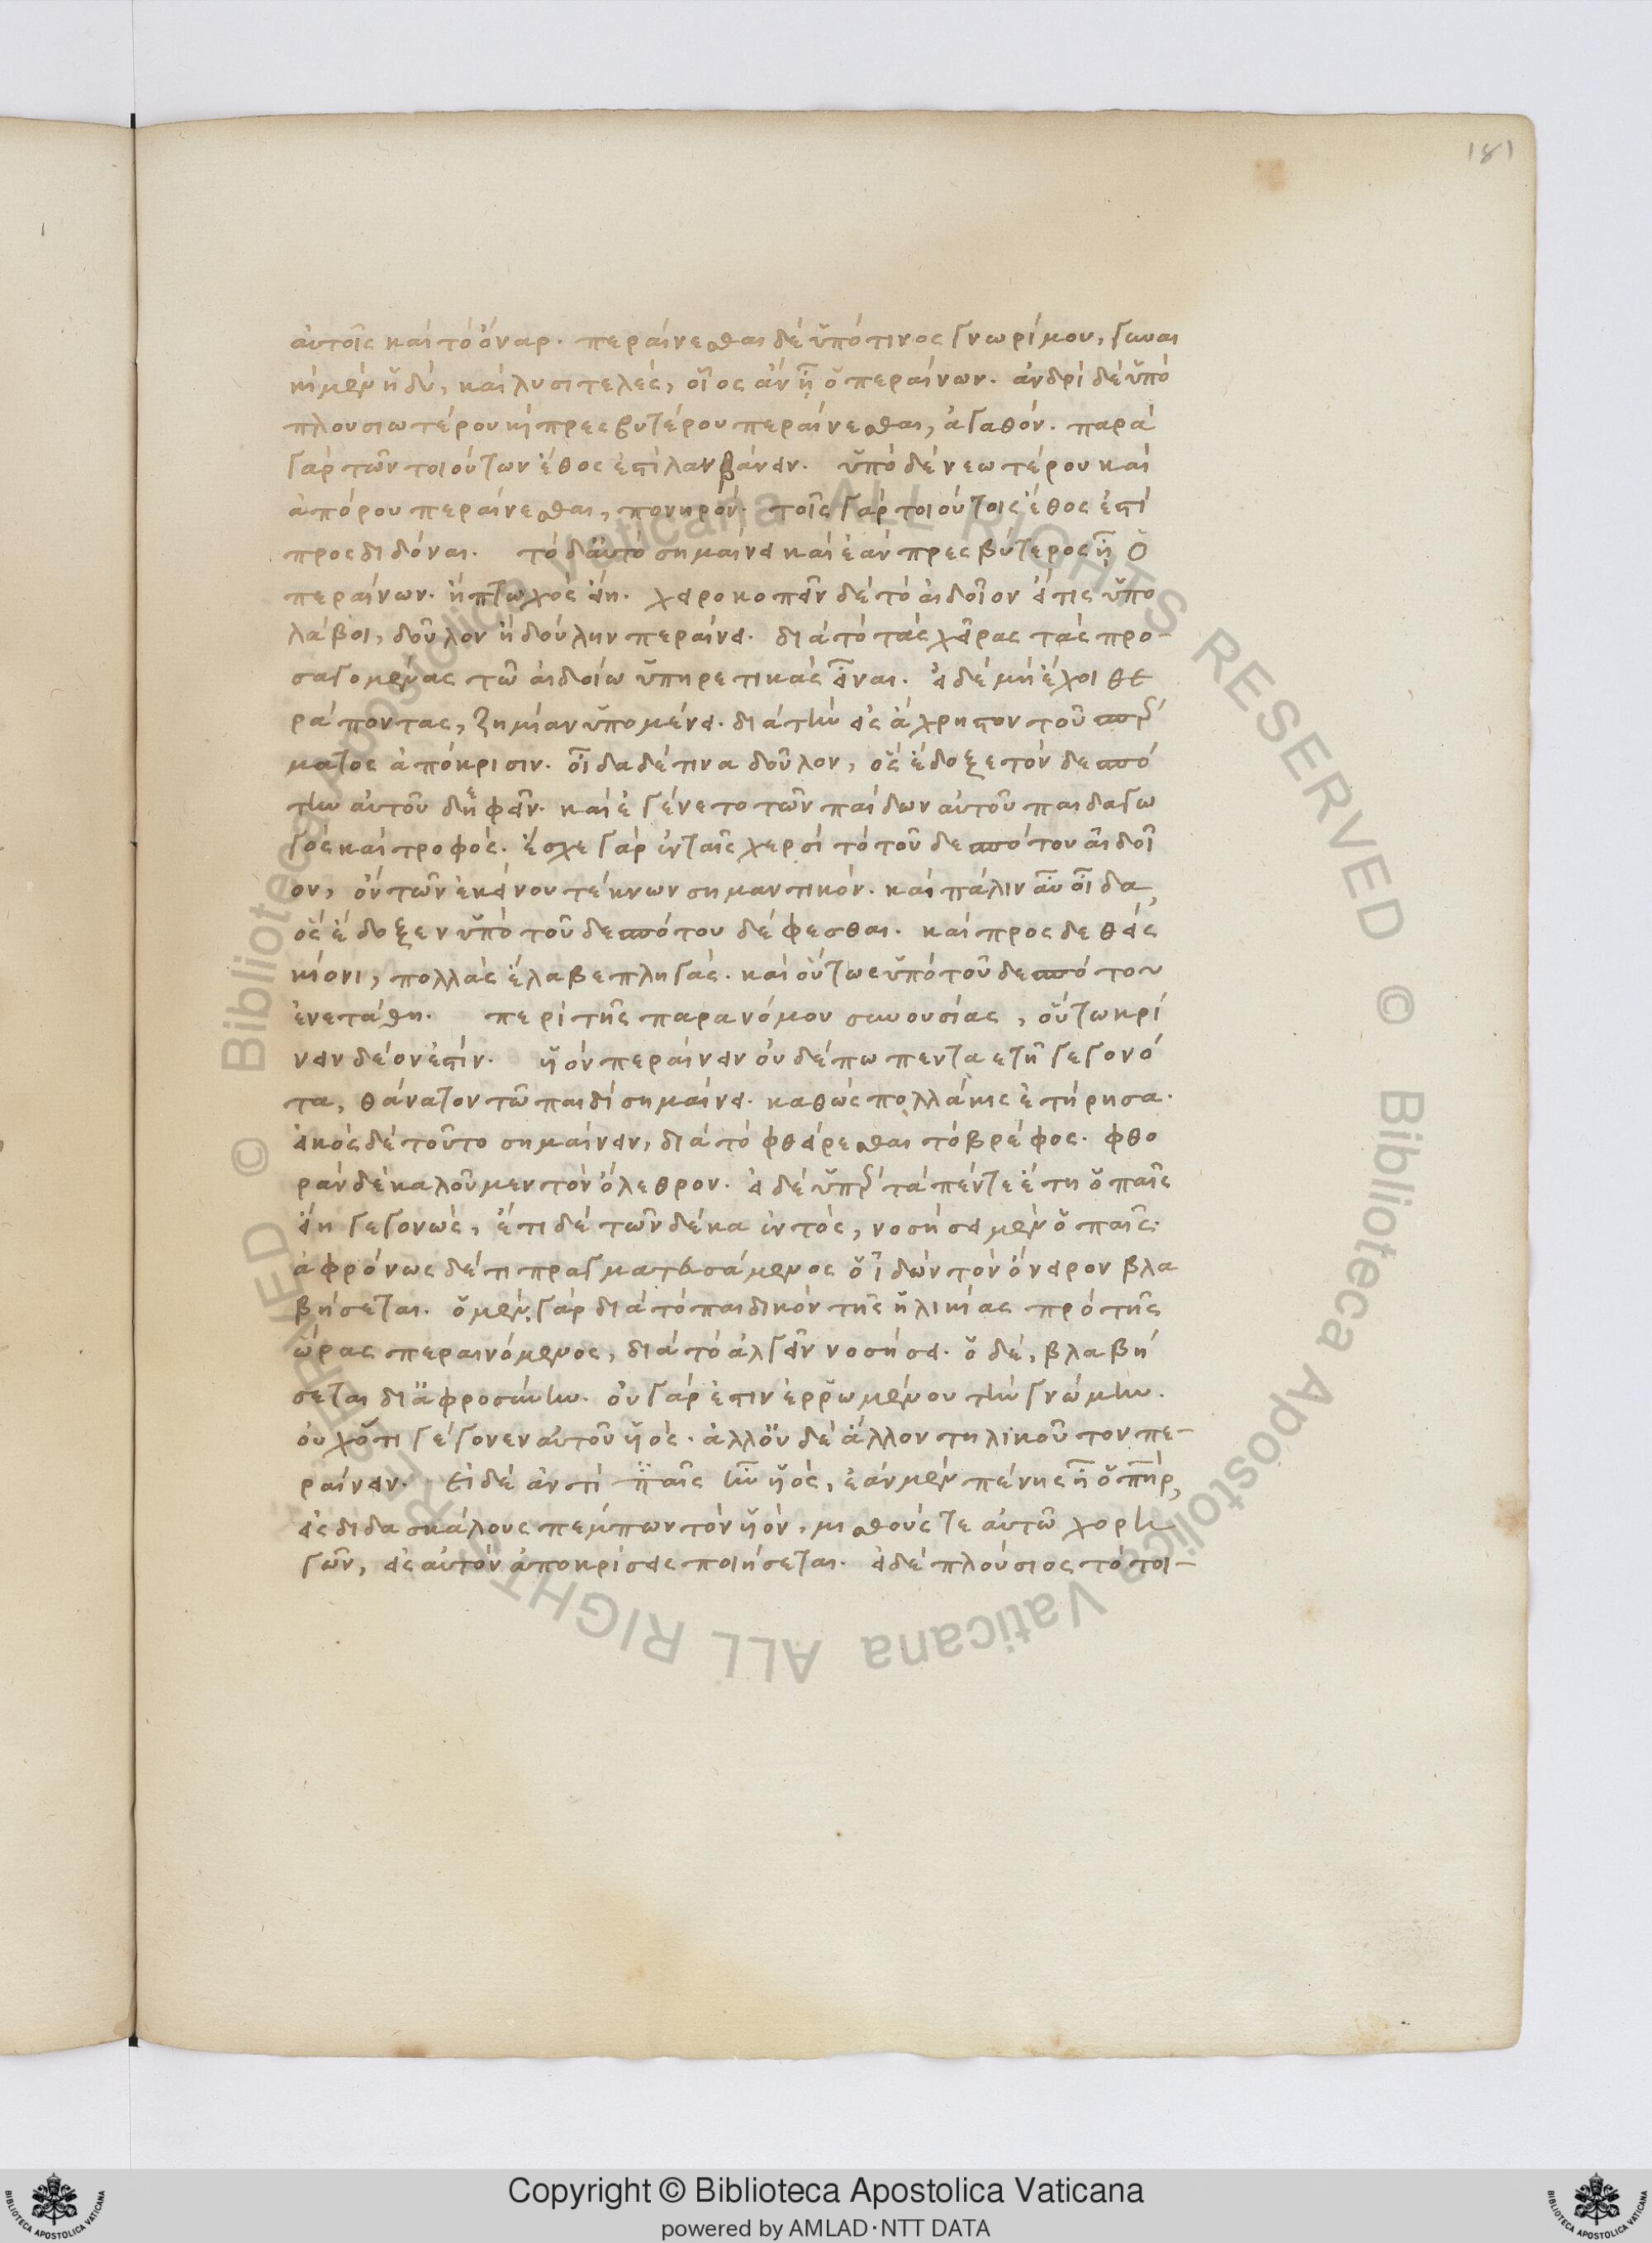 181
αὐτοῖς καὶ τὸ ὄναρ. περαίνεσθαι δὲ ὑπό τινος γνωρίμου, γυναι
κὶ μὲν ἡδὺ, καὶ λυσιτελὲς, οἷος ἂν ᾖ ὁ περαίνων. ἀνδρὶ δὲ ὑπὸ
πλουσιωτέρου κὶ πρεσβυτέρου περαίνεσθαι, ἀγαθόν. παρὰ
γὰρ τῶν τοιούτων ἔθος ἐστὶ λανβάνειν. ὑπὸ δὲ νεωτέρου καὶ
ἀπόρου περαίνεσθαι, πονηρόν. τοῖς γὰρ τοιούτοις ἔθος ἐστὶ
προςδιδόναι. τὸ δ'αὐτὸ σημαίνει καὶ ἐὰν πρεσβύτερος ᾖ ὁ
περαίνων. ἢ πτωχὸς εἴη. χειροκοπεῖν δὲ τὸ αἰδοῖον εἴ τις ὑπο
λάβοι, δοῦλον ἢ δούλην περαίνει. διὰ τὸ τὰς χεῖρας τὰς προ-
σαγομένας τῶ αἰδοίω ὑπηρετικὰς εἶναι. εἰ δὲ μὴ ἔχοι θε
ράποντας, ζημίαν ὑπομένει. διὰ τὴν εἰς ἄχρηστον τοῦ σπέρ
ματος ἀπόκρισιν. οἶδα δέ τινα δοῦλον, ὃς ἔδοξε τὸν δεσπό
την αὐτοῦ δεφεῖν. καὶ ἐγένετο τῶν παίδων αὐτοῦ παιδαγω
γὸς καὶ τροφός. ἔσχε γὰρ ἐν ταῖς χερσὶ τὸ τοῦ δεσπότου αἰδοῖ
ον, ὂν τῶν ἐκείνου τέκνων σημαντικόν. καὶ πάλιν αὖ οἶδα,
ὃς ἔδοξεν ὑπὸ τοῦ δεσπότου δέφεσθαι. καὶ προςδεθεὶς
κίονι, πολλὰς ἔλαβε πληγάς. καὶ οὕτως ὑπὸ τοῦ δεσπότου
ἐνετάθη. περὶ τῆς παρανόμου συνουσίας, οὕτω κρί
νειν δέον ἐστίν. ὑὸν περαίνειν οὐδέπω πενταετῆ γεγονό
τα, θάνατον τῶ παιδὶ σημαίνει. καθὼς πολλάκις ἐτήρησα.
εἰκὸς δὲ τοῦτο σημαίνειν, διὰ τὸ φθείρεσθαι τὸ βρέφος. φθο
ρὰν δὲ καλοῦμεν τὸν ὄλεθρον. εἰ δὲ ὑπὲρ τὰ πέντε ἔτη ὁ παῖς
εἴη γεγονὼς, ἔτι δὲ τῶν δέκα ἐντὸς, νοσήσει μὲν ὁ παῖς.
ἀφρόνως δέ τι πραγματευσάμενος ὁ ἰδὼν τὸν ὄνειρον βλα
βήσεται. ὁ μὲν γὰρ διὰ τὸ παιδικὸν τῆς ἡλικίας πρὸ τῆς
ὥρας περαινόμενος, διὰ τὸ ἀλγεῖν νοσήσει. ὁ δὲ, βλαβή
σεται δι'ἀφροσύνην. οὐ γάρ ἐστιν ἐρρωμένου τὴν γνώμην.
οὐχ ὅτι γέγονεν αὐτοῦ ὑός. ἀλλ'οὐδὲ ἄλλον τηλικοῦτον πε-
ραίνειν. Εἰ δὲ ἀντὶ παῖς ἦν ὑὸς, ἐὰν μὲν πένης ᾖ ὁ πατὴρ,
εἰς διδασκάλους πέμπων τὸν ὑὸν, μισθούς τε αὐτῶ χορη
γῶν, εἰς αὐτὸν ἀποκρίσεις ποιήσεται. εἰ δὲ πλούσιος τὸ τοι-
Copyright © Biblioteca Apostolica Vaticana
powered by AMLAD·NTT DATA